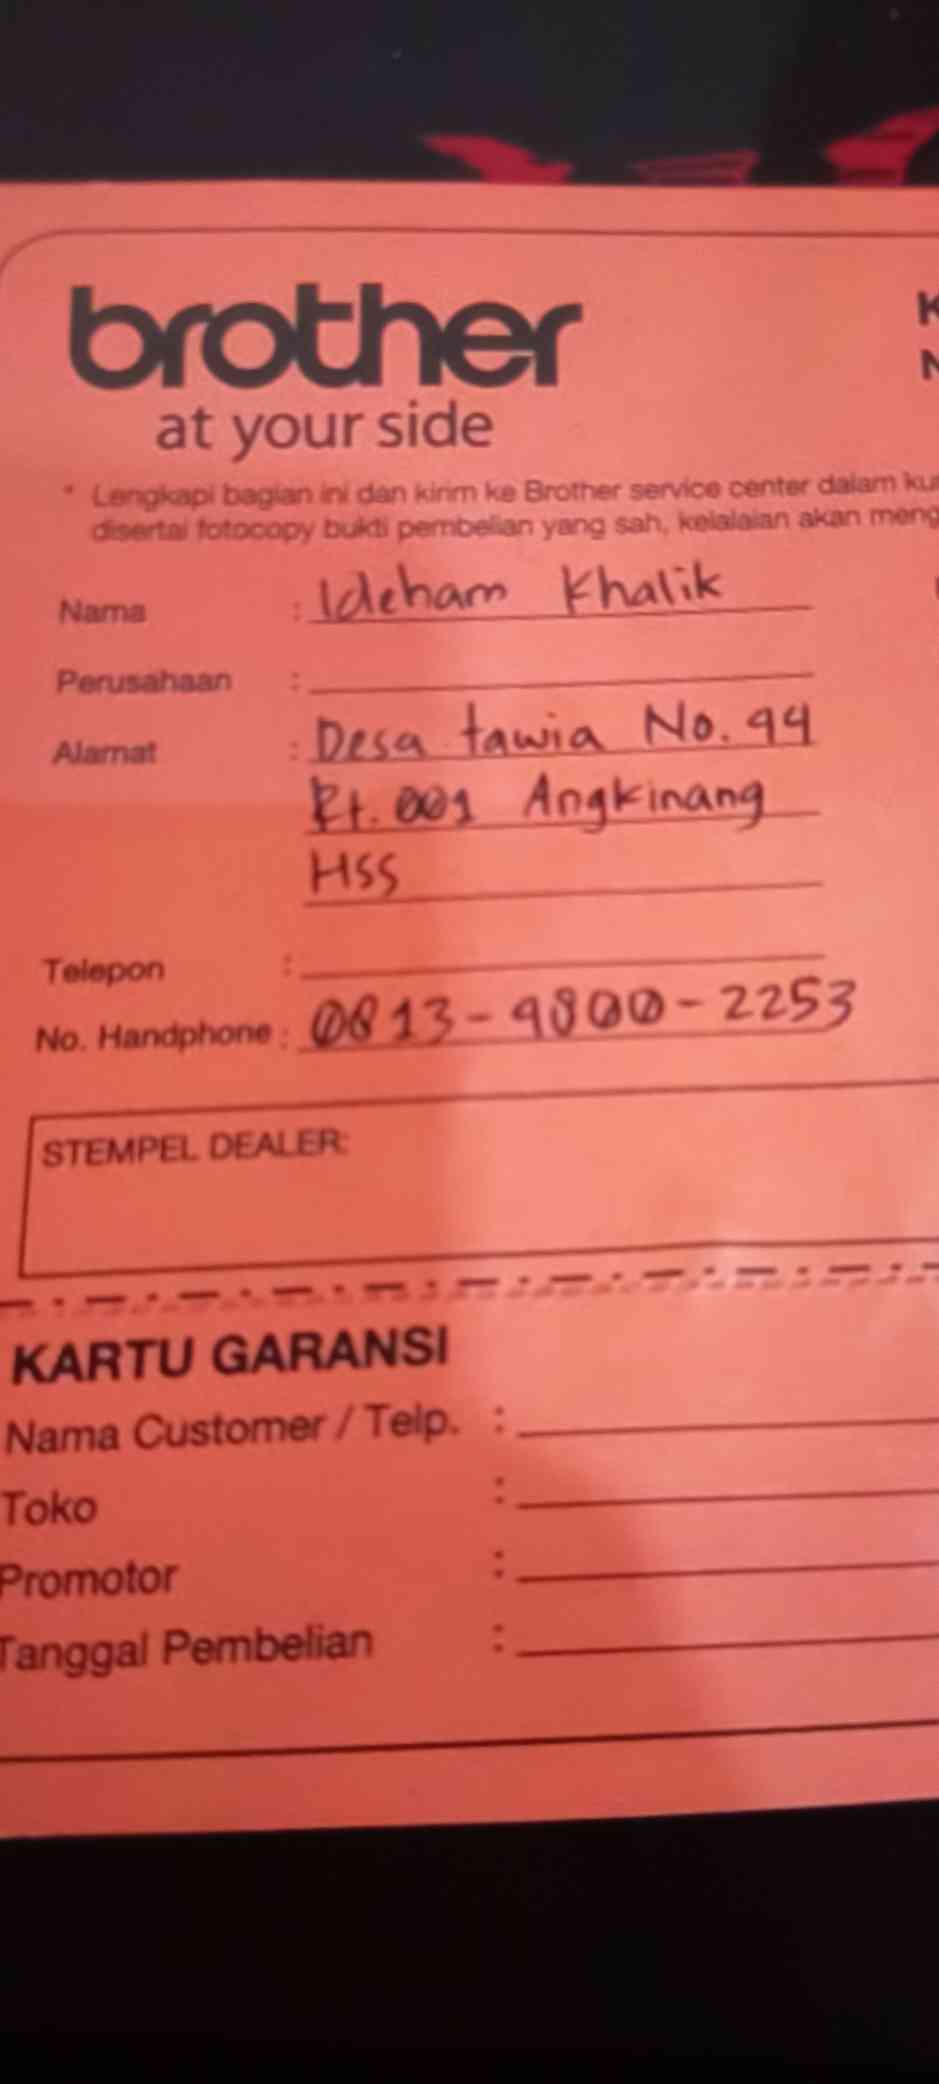 brother
at your side
* Lengkapi bagian ini dan kirim ke Brother service center dalam
disertai fotocopy bukti pembelian yang sah, kelalaian akan
Nama : Ideham Khalik
Perusahaan :
Alamat : Desa tawia No. 94
Rt. 001 Angkinang
HSS
Telepon :
No. Handphone : 0813-9800-2253
STEMPEL DEALER:
KARTU GARANSI
Nama Customer / Telp. :
Toko :
Promotor :
Tanggal Pembelian :